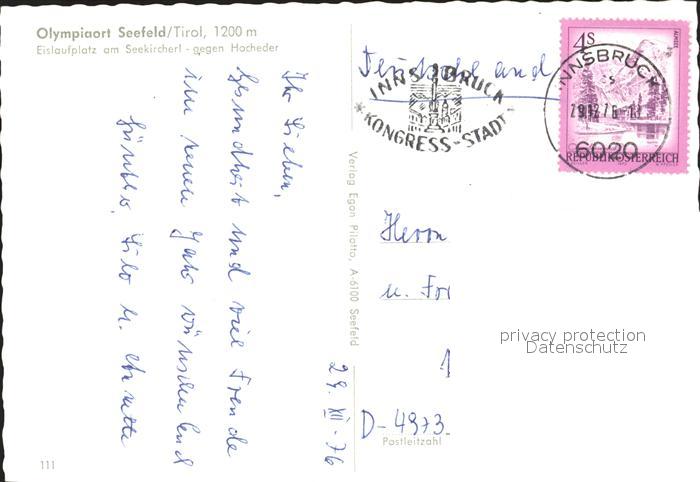 Olympiaort Seefeld/Tirol, 1200 m
Eislaufplatz am Seekircherl - gegen Hocheder
Ihr Lieben,
Gesundheit und viel Freude
im neuen Jahr wünschen Euch
Günther, Lilo u. Annette
29. XII. 76
Verlag Egon Pilatto, A-6100 Seefeld
Deutschland
INNSBRUCK
KONGRESS-STADT
4S
ALMSEE
INNSBRUCK
s
29.12.76-17
6020
REPUBLIK ÖSTERREICH
Herrn
u. Frr
1
D-4973
Postleitzahl
privacy protection
Datenschutz
111